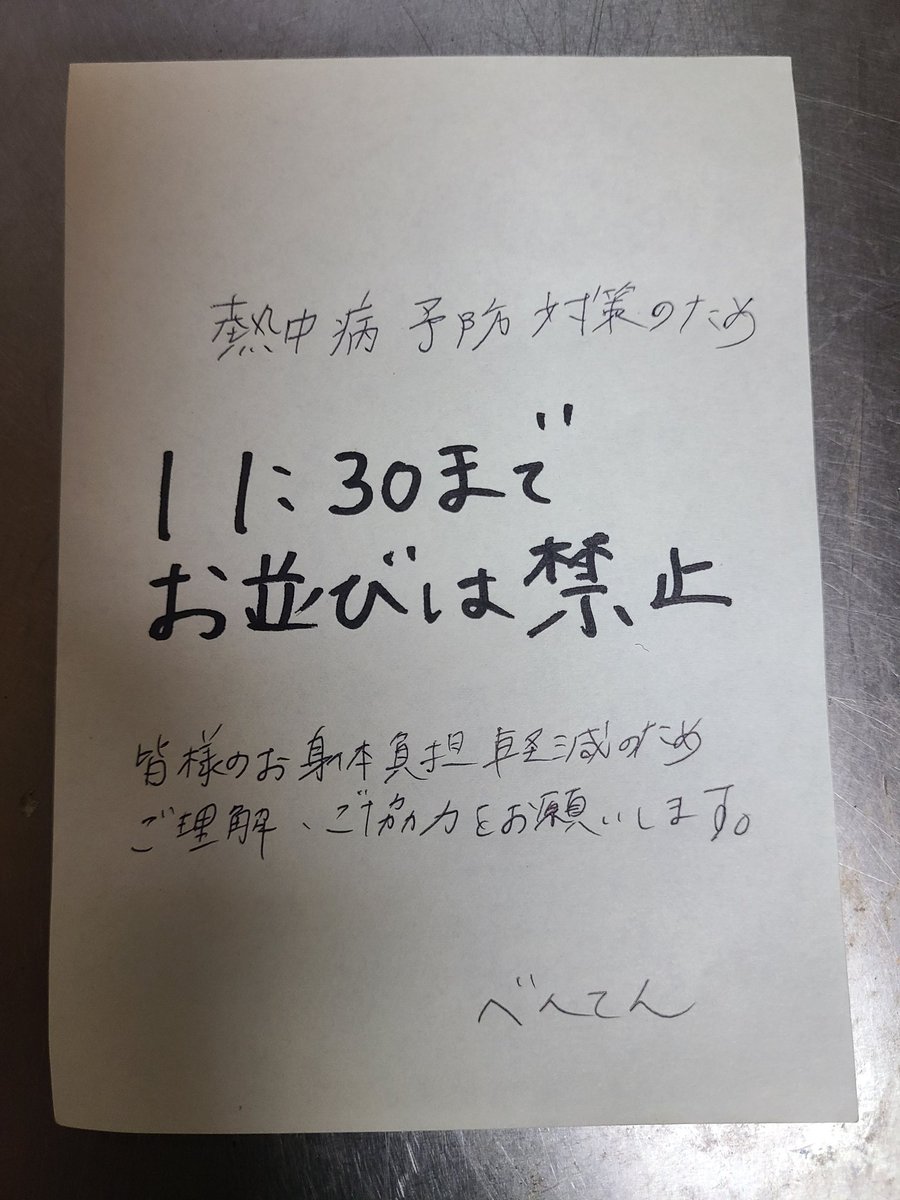 熱中病予防対策のため
11:30まで
お並びは禁止
皆様のお身体負担軽減のため
ご理解、ご協力をお願いします。
べんてん